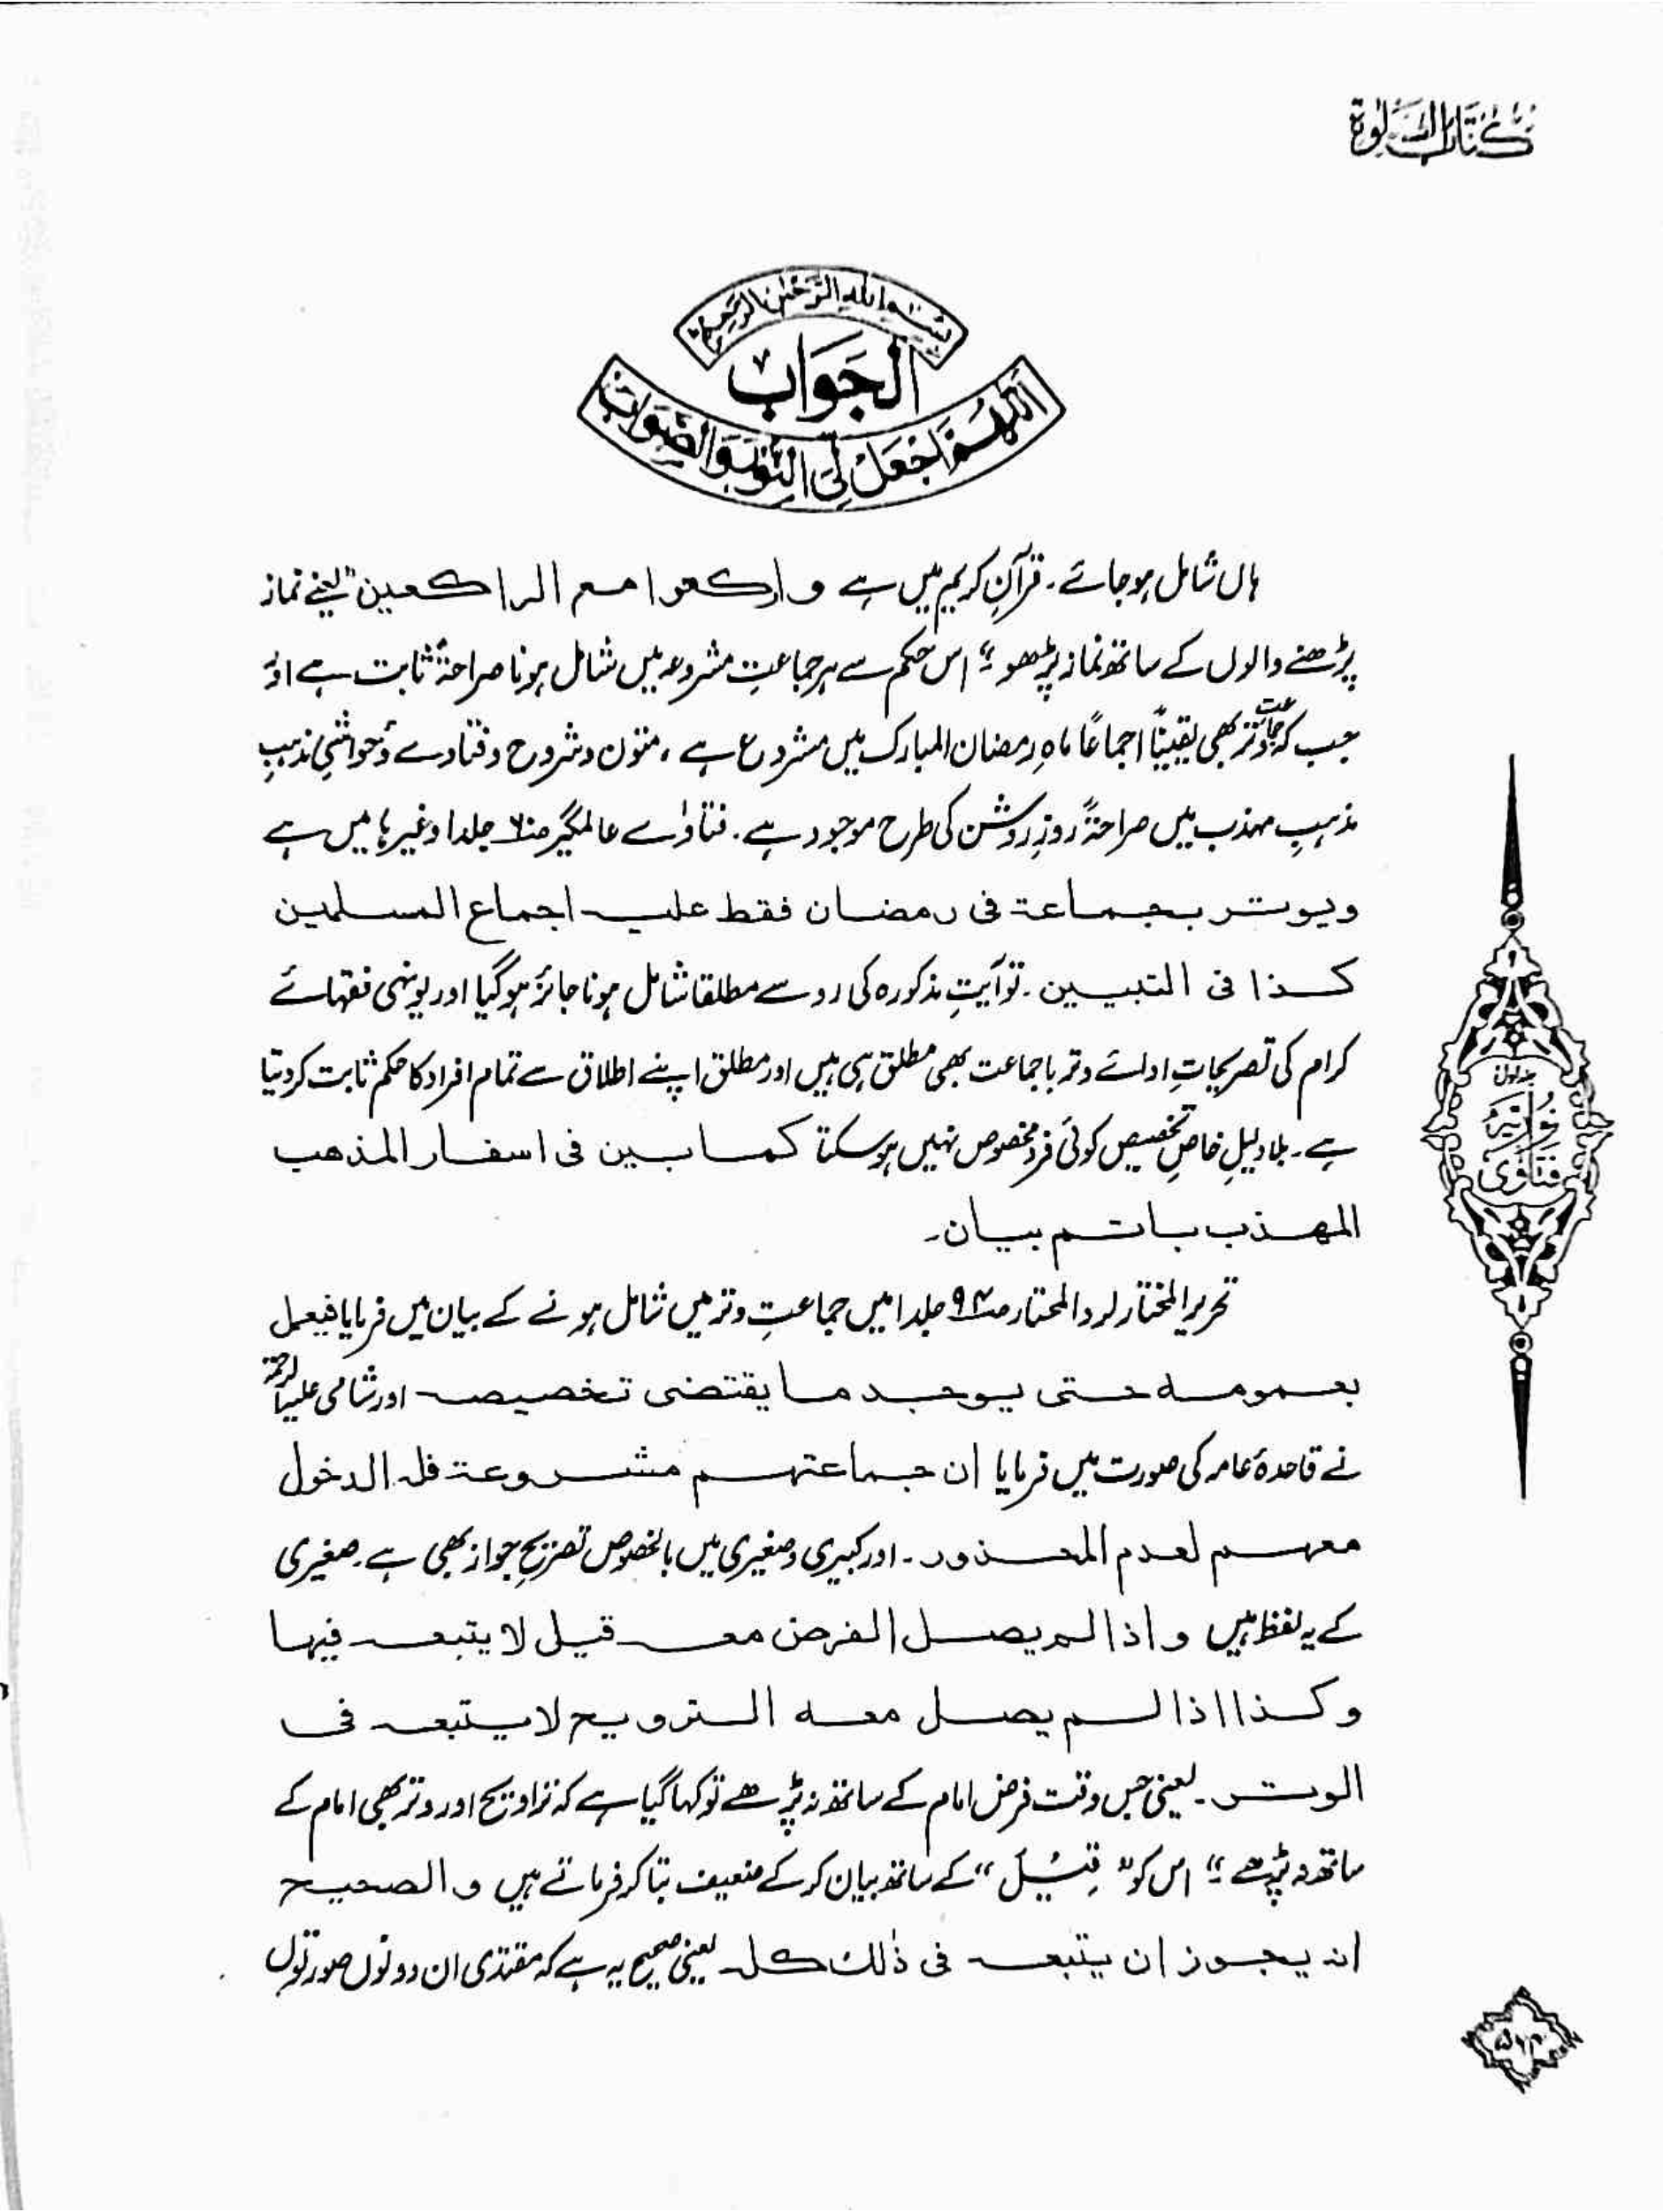 كتاب الصلوٰة
بسم الله الرحمن الرحيم
الجواب
اللهم اجعل لی النور والصواب
ہاں شامل ہو جائے۔ قرآنِ کریم میں ہے وارکعوا مع الراکعین" یعنی نماز
پڑھنے والوں کے ساتھ نماز پڑھو ؛" اس حکم سے ہر جماعتِ مشروعہ میں شامل ہونا صراحۃً ثابت ہے اور
جب کہ جماعت وتر بھی یقیناً اجماعًا ماہِ رمضان المبارک میں مشروع ہے ، متون و شروح و فتاوے و حواشیِ مذہبِ
مذہبِ مہذب میں صراحۃً روزِ روشن کی طرح موجود ہے۔ فتاوٰے عالمگیر جلد۱ وغیرہا میں ہے
ویوتر بجماعة فی رمضان فقط علیه اجماع المسلمین
کذا فی التبیین۔ تو آیتِ مذکورہ کی رو سے مطلقا شامل ہونا جائز ہو گیا اور یونہی فقہائے
کرام کی تصریحاتِ ادائے وتر باجماعت بھی مطلق ہی ہیں اور مطلق اپنے اطلاق سے تمام افراد کا حکم ثابت کر دیتا
ہے۔ بلا دلیلِ خاصِ تخصیص کوئی فرد مخصوص نہیں ہو سکتا کما بین فی اسفار المذهب
المهذب باتم بیان۔
تحریر المختار لرد المحتار ص۹۴ جلد۱ میں جماعتِ وتر میں شامل ہونے کے بیان میں فرمایا فیعمل
بعمومه حتی یوجد ما یقتضی تخصیصه اور شامی علیہ الرحمۃ
نے قاعدۂ عامہ کی صورت میں فرمایا ان جماعتهم مشروعة فله الدخول
معهم لعدم المحذور۔ اور کبیری و صغیری میں بالخصوص تصریحِ جواز بھی ہے۔ صغیری
کے یہ لفظ ہیں واذا لم یصل الفرض معه قیل لا یتبعه فیها
وکذا اذا لم یصل معه الترویح لا یتبعه فی
الوتر۔ یعنی جس وقت فرض امام کے ساتھ نہ پڑھے تو کہا گیا ہے کہ تراویح اور وتر بھی امام کے
ساتھ نہ پڑھے ؛" اس کو "قِیْلَ" کے ساتھ بیان کر کے ضعیف بتا کر فرماتے ہیں والصحیح
انه یجوز ان یتبعه فی ذٰلك کله یعنی صحیح یہ ہے کہ مقتدی ان دونوں صورتوں
جلد اول
نوریہ
فتاوٰی
۵۶۴